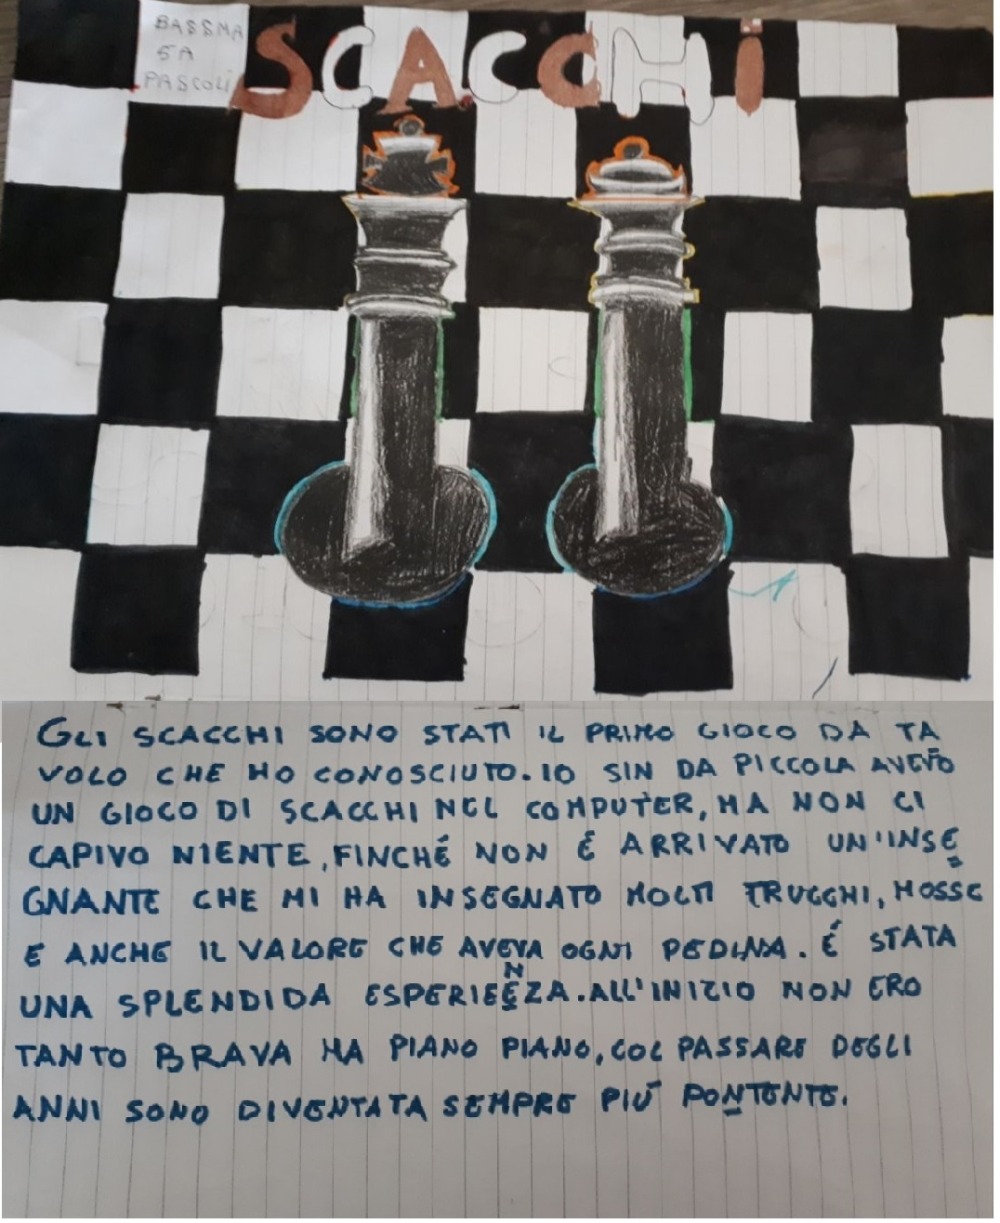 BASSMA
5A
PASCOLI
SCACCHi
GLI SCACCHI SONO STATI IL PRIMO GIOCO DA TA
VOLO CHE HO CONOSCIUTO. IO SIN DA PICCOLA AVEVO
UN GIOCO DI SCACCHI NEL COMPUTER, MA NON CI
CAPIVO NIENTE, FINCHÉ NON É ARRIVATO UN'INSE
GNANTE CHE MI HA INSEGNATO MOLTI TRUCCHI, MOSSE
E ANCHE IL VALORE CHE AVEVA OGNI PEDINA. É STATA
UNA SPLENDIDA ESPERIENZA. ALL'INIZIO NON ERO
TANTO BRAVA MA PIANO PIANO, COL PASSARE DEGLI
ANNI SONO DIVENTATA SEMPRE PIÚ PONTENTE.